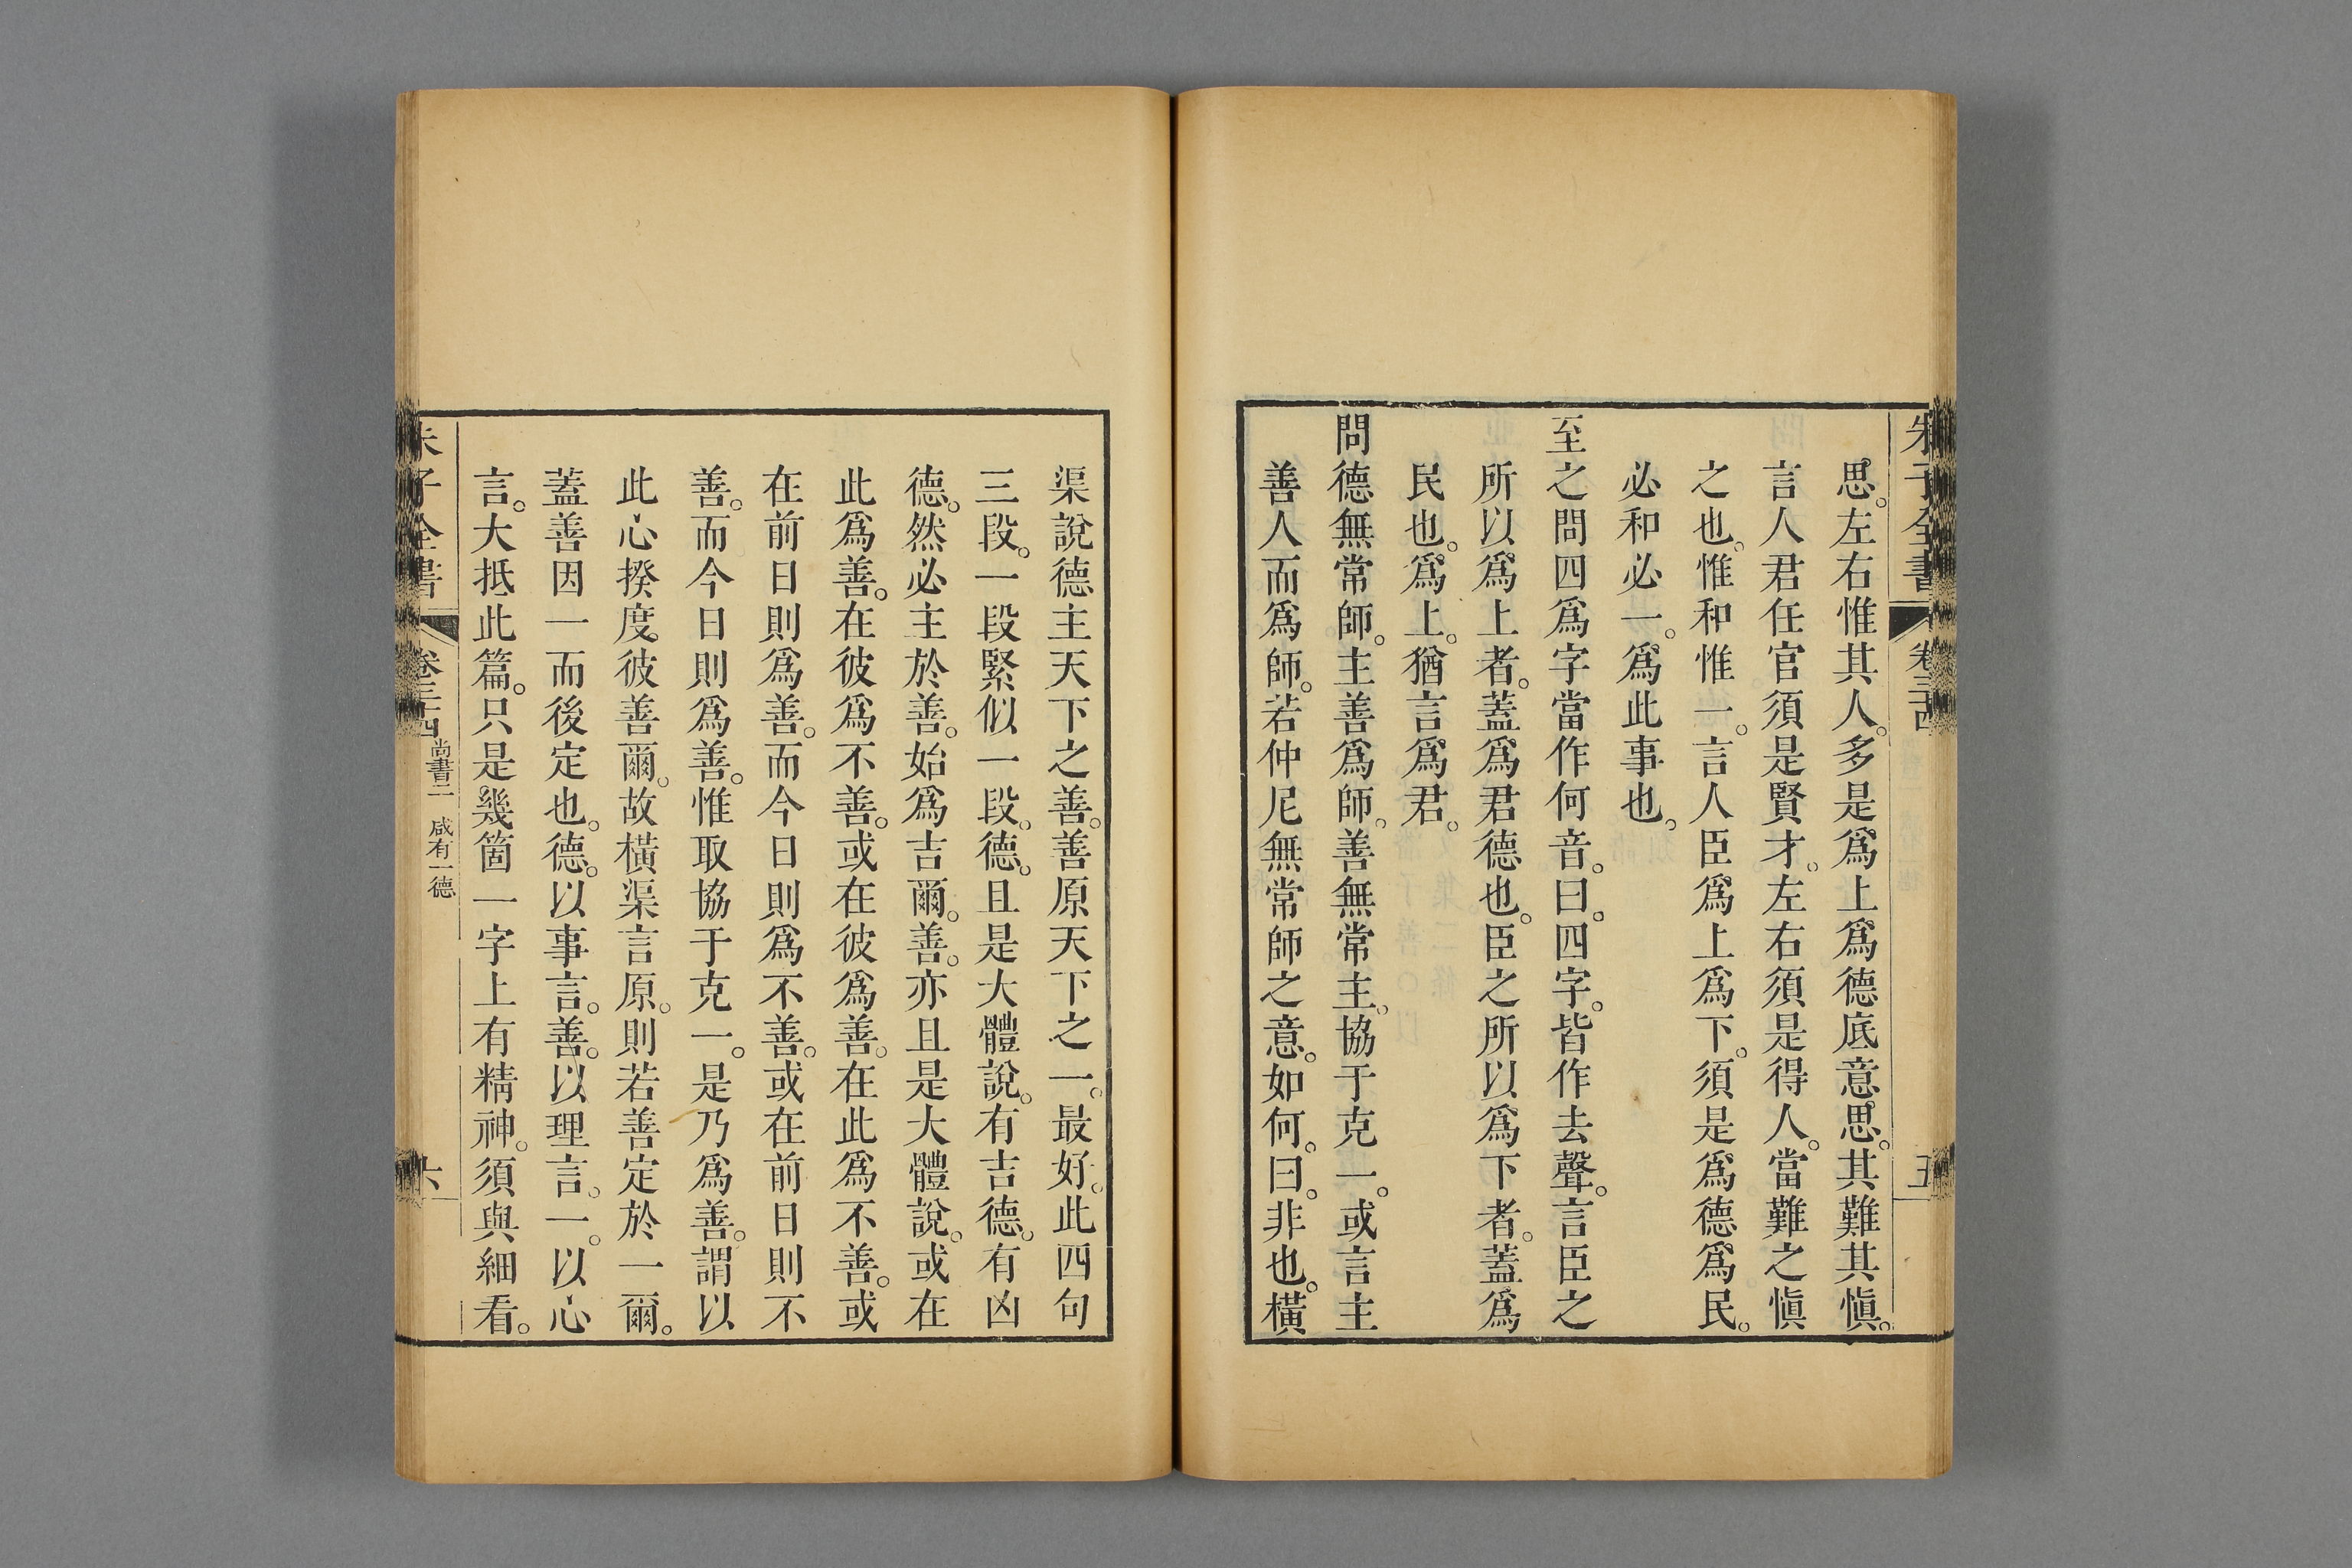 朱子全書 卷三十四 五
思。左右惟其人。多是爲上爲德底意。思。其難其愼。
言人君任官須是賢才。左右須是得人。當難之愼
之也。惟和惟一。言人臣爲上爲下。須是爲德爲民。
必和必一。爲此事也。
至之問四爲字當作何音。曰。四字。皆作去聲。言臣之
所以爲上者。蓋爲君德也。臣之所以爲下者。蓋爲
民也。爲上。猶言爲君。
問德無常師。主善爲師。善無常主。協于克一。或言主
善人而爲師。若仲尼無常師之意。如何。曰。非也。橫
渠說德主天下之善。善原天下之一。最好。此四句
三段。一段緊似一段。德。且是大體說。有吉德。有凶
德。然必主於善。始爲吉爾。善。亦且是大體說。或在
此爲善。在彼爲不善。或在彼爲善。在此爲不善。或
在前日則爲善。而今日則爲不善。或在前日則不
善。而今日則爲善。惟取協于克一。是乃爲善。謂以
此心揆度。彼善爾。故橫渠言原。則若善定於一爾。
蓋善因一而後定也。德。以事言。善。以理言。一。以心
言。大抵此篇。只是幾箇一字上有精神。須與細看。
朱子全書 卷三十四 尚書二 咸有一德 六